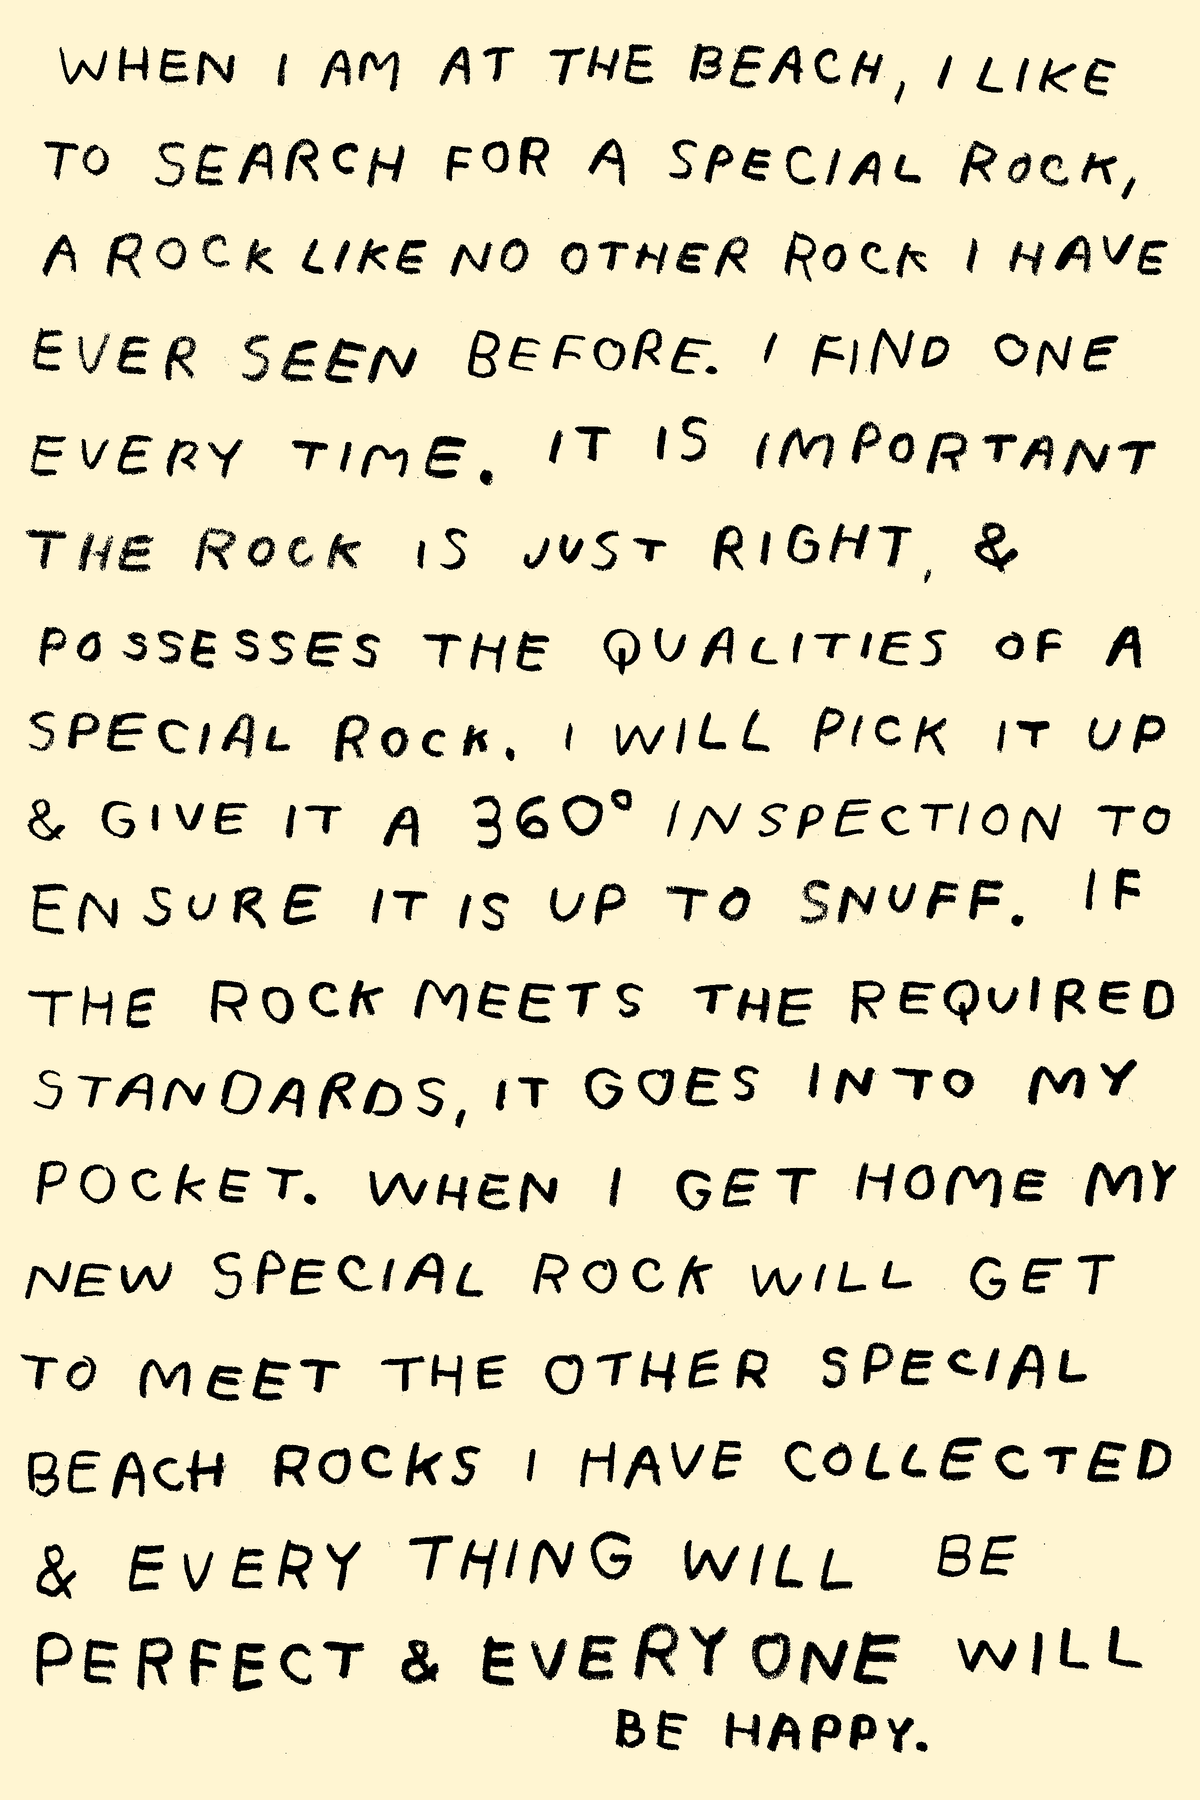 WHEN I AM AT THE BEACH, I LIKE
TO SEARCH FOR A SPECIAL ROCK,
A ROCK LIKE NO OTHER ROCK I HAVE
EVER SEEN BEFORE. I FIND ONE
EVERY TIME. IT IS IMPORTANT
THE ROCK IS JUST RIGHT, &
POSSESSES THE QUALITIES OF A
SPECIAL ROCK. I WILL PICK IT UP
& GIVE IT A 360° INSPECTION TO
ENSURE IT IS UP TO SNUFF. IF
THE ROCK MEETS THE REQUIRED
STANDARDS, IT GOES INTO MY
POCKET. WHEN I GET HOME MY
NEW SPECIAL ROCK WILL GET
TO MEET THE OTHER SPECIAL
BEACH ROCKS I HAVE COLLECTED
& EVERY THING WILL BE
PERFECT & EVERYONE WILL
BE HAPPY.